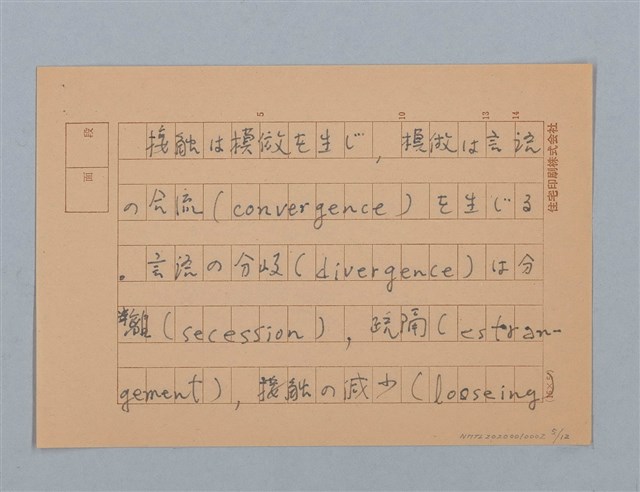 5 10 13 14
接触は模倣を生じ,模倣は言語
の合流(convergence)を生じる
.言語の分岐(divergence)は分
離(secession),疏隔(estran-
gement),接触の減少(looseing
段
面
住宅印刷株式会社
5/12